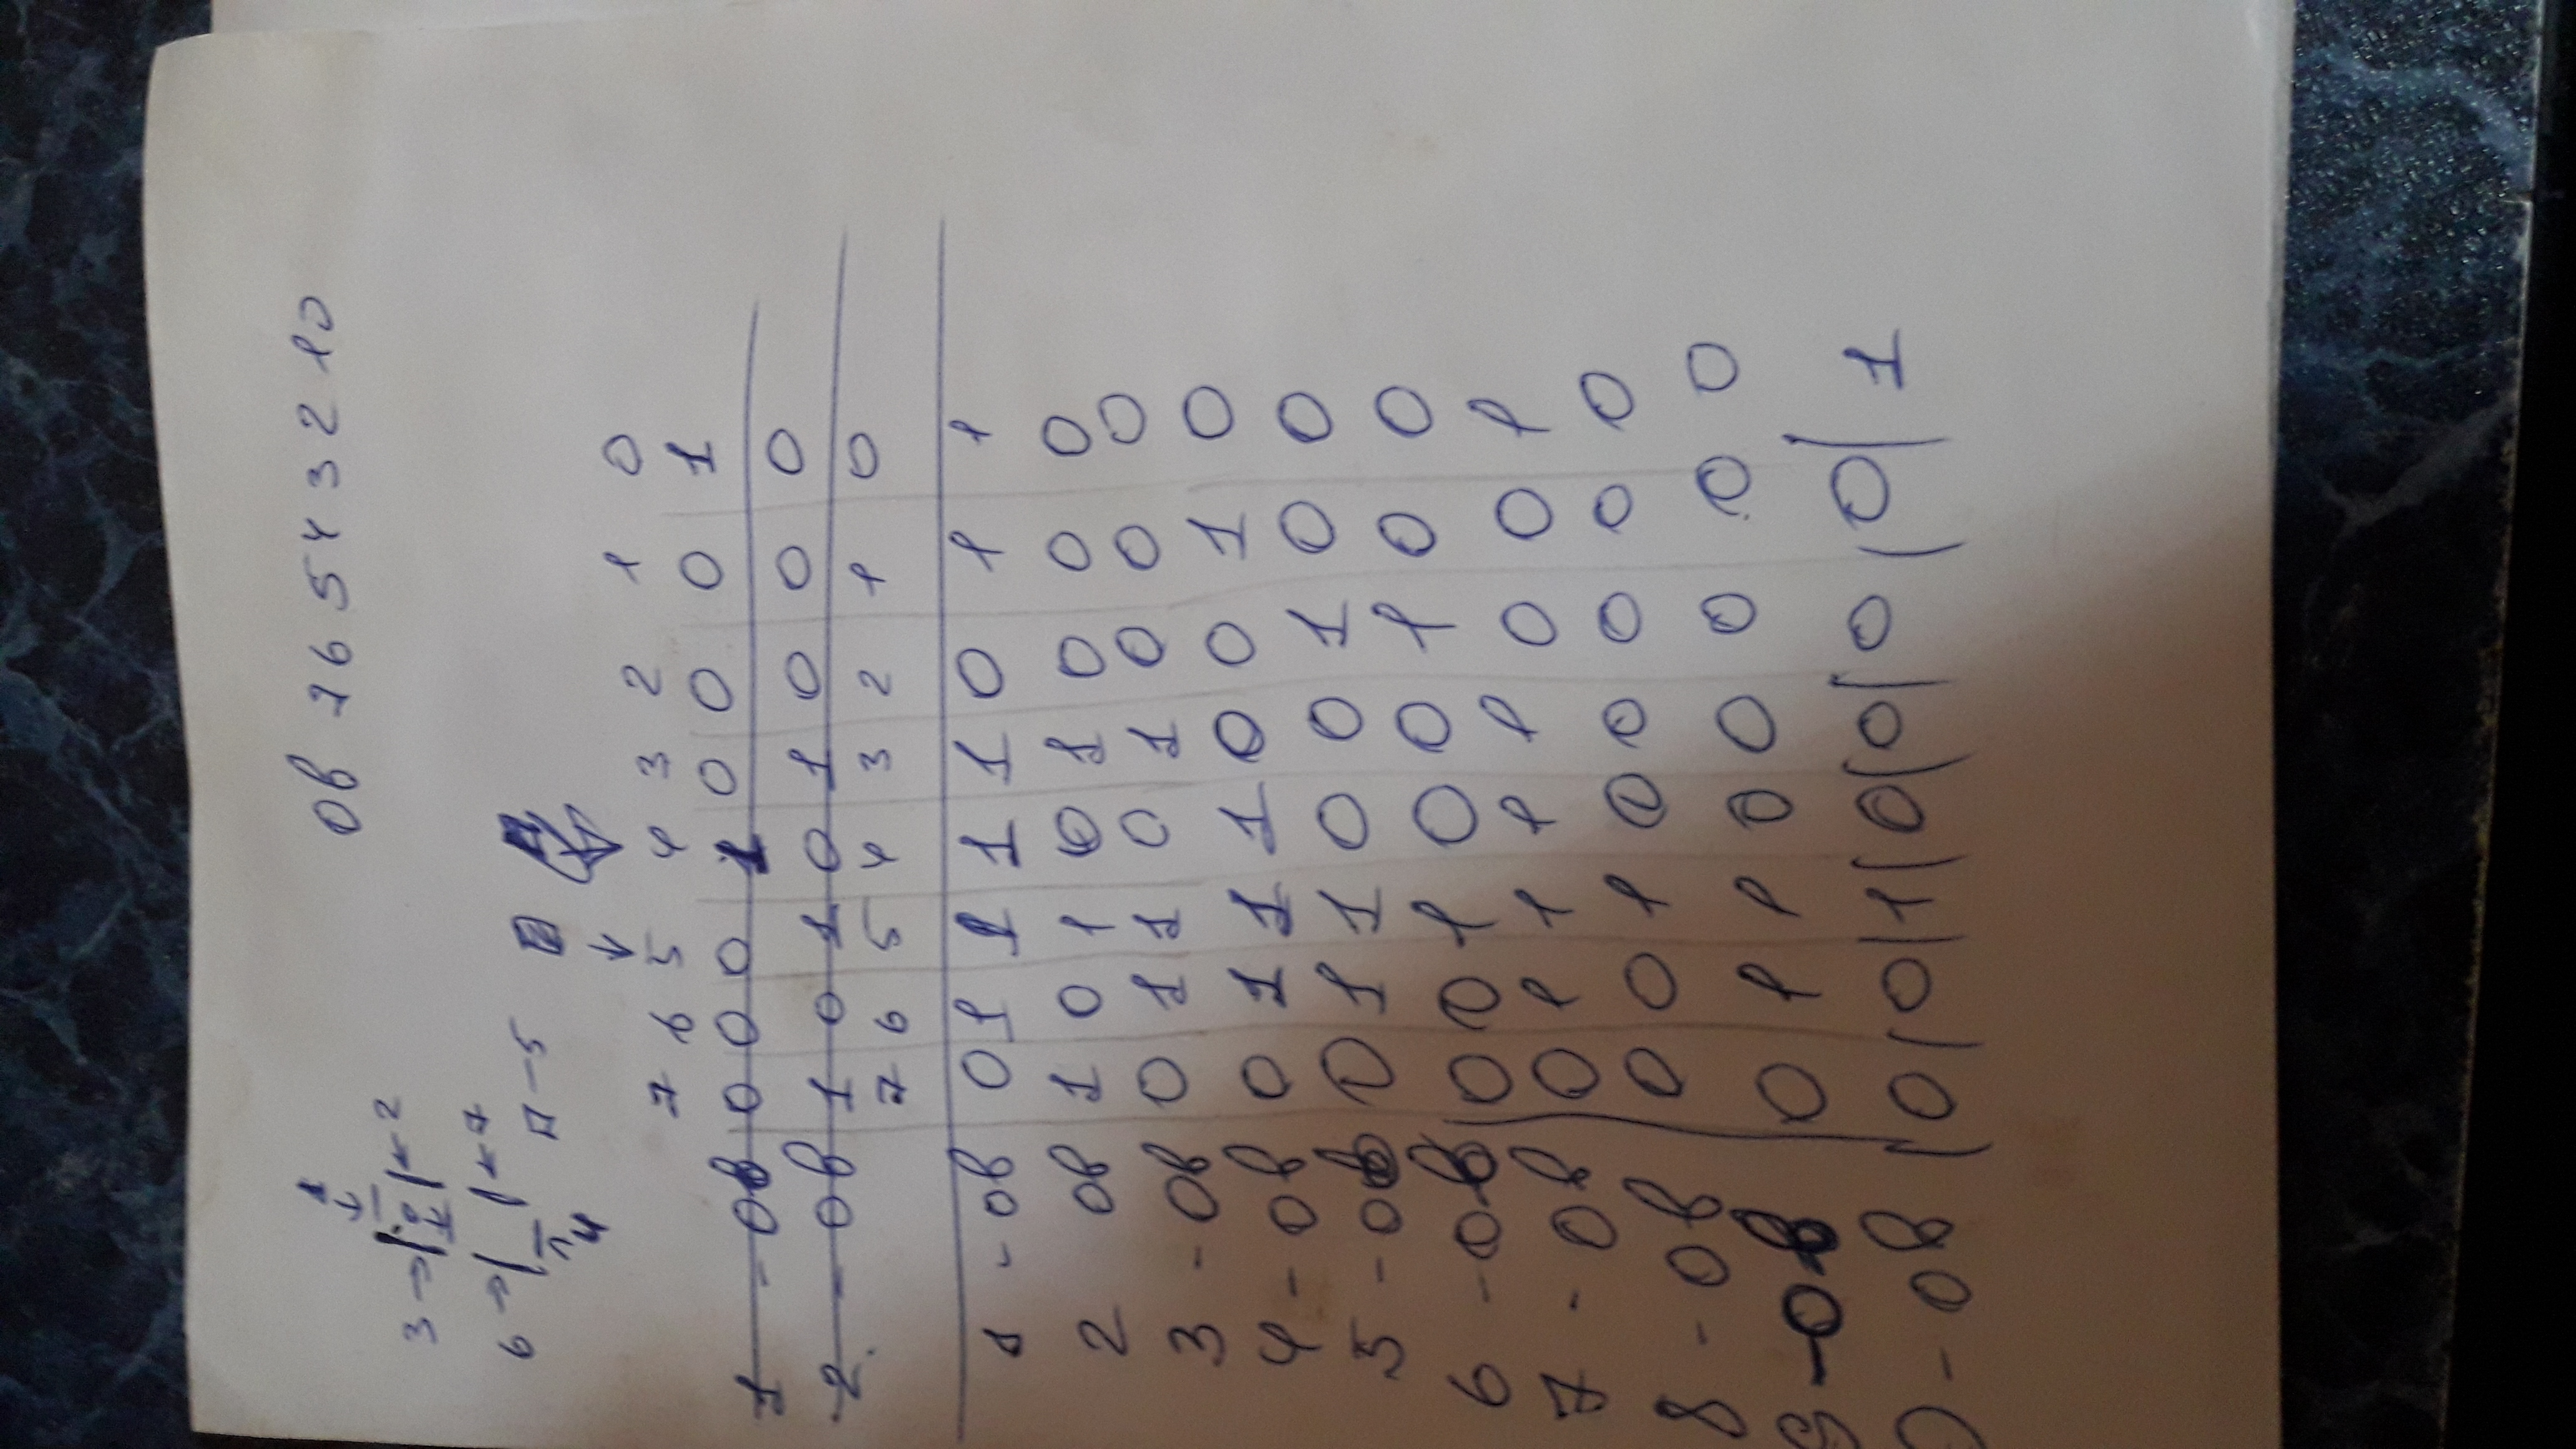 1
0b 76543210
3 2
0
6 7
□ - 5
4
7 6 5 4 3 2 1 0
1 - 0b 0 0 0 1 0 0 0 1
2 - 0b 1 0 1 0 1 0 0 0
7 6 5 4 3 2 1 0
1 - 0b 0 1 1 1 1 0 1 1
2 0b 1 0 1 0 1 0 0 0
3 - 0b 0 1 1 0 1 0 0 0
4 - 0b 0 1 1 1 0 0 1 0
5 - 0b 0 1 1 0 0 1 0 0
6 - 0b 0 0 1 0 0 1 0 0
7 - 0b 0 1 1 1 1 0 0 1
8 - 0b 0 0 1 0 0 0 0 0
9 - 0b 0 1 1 0 0 0 0 0
0 - 0b 0 0 1 0 0 0 0 1